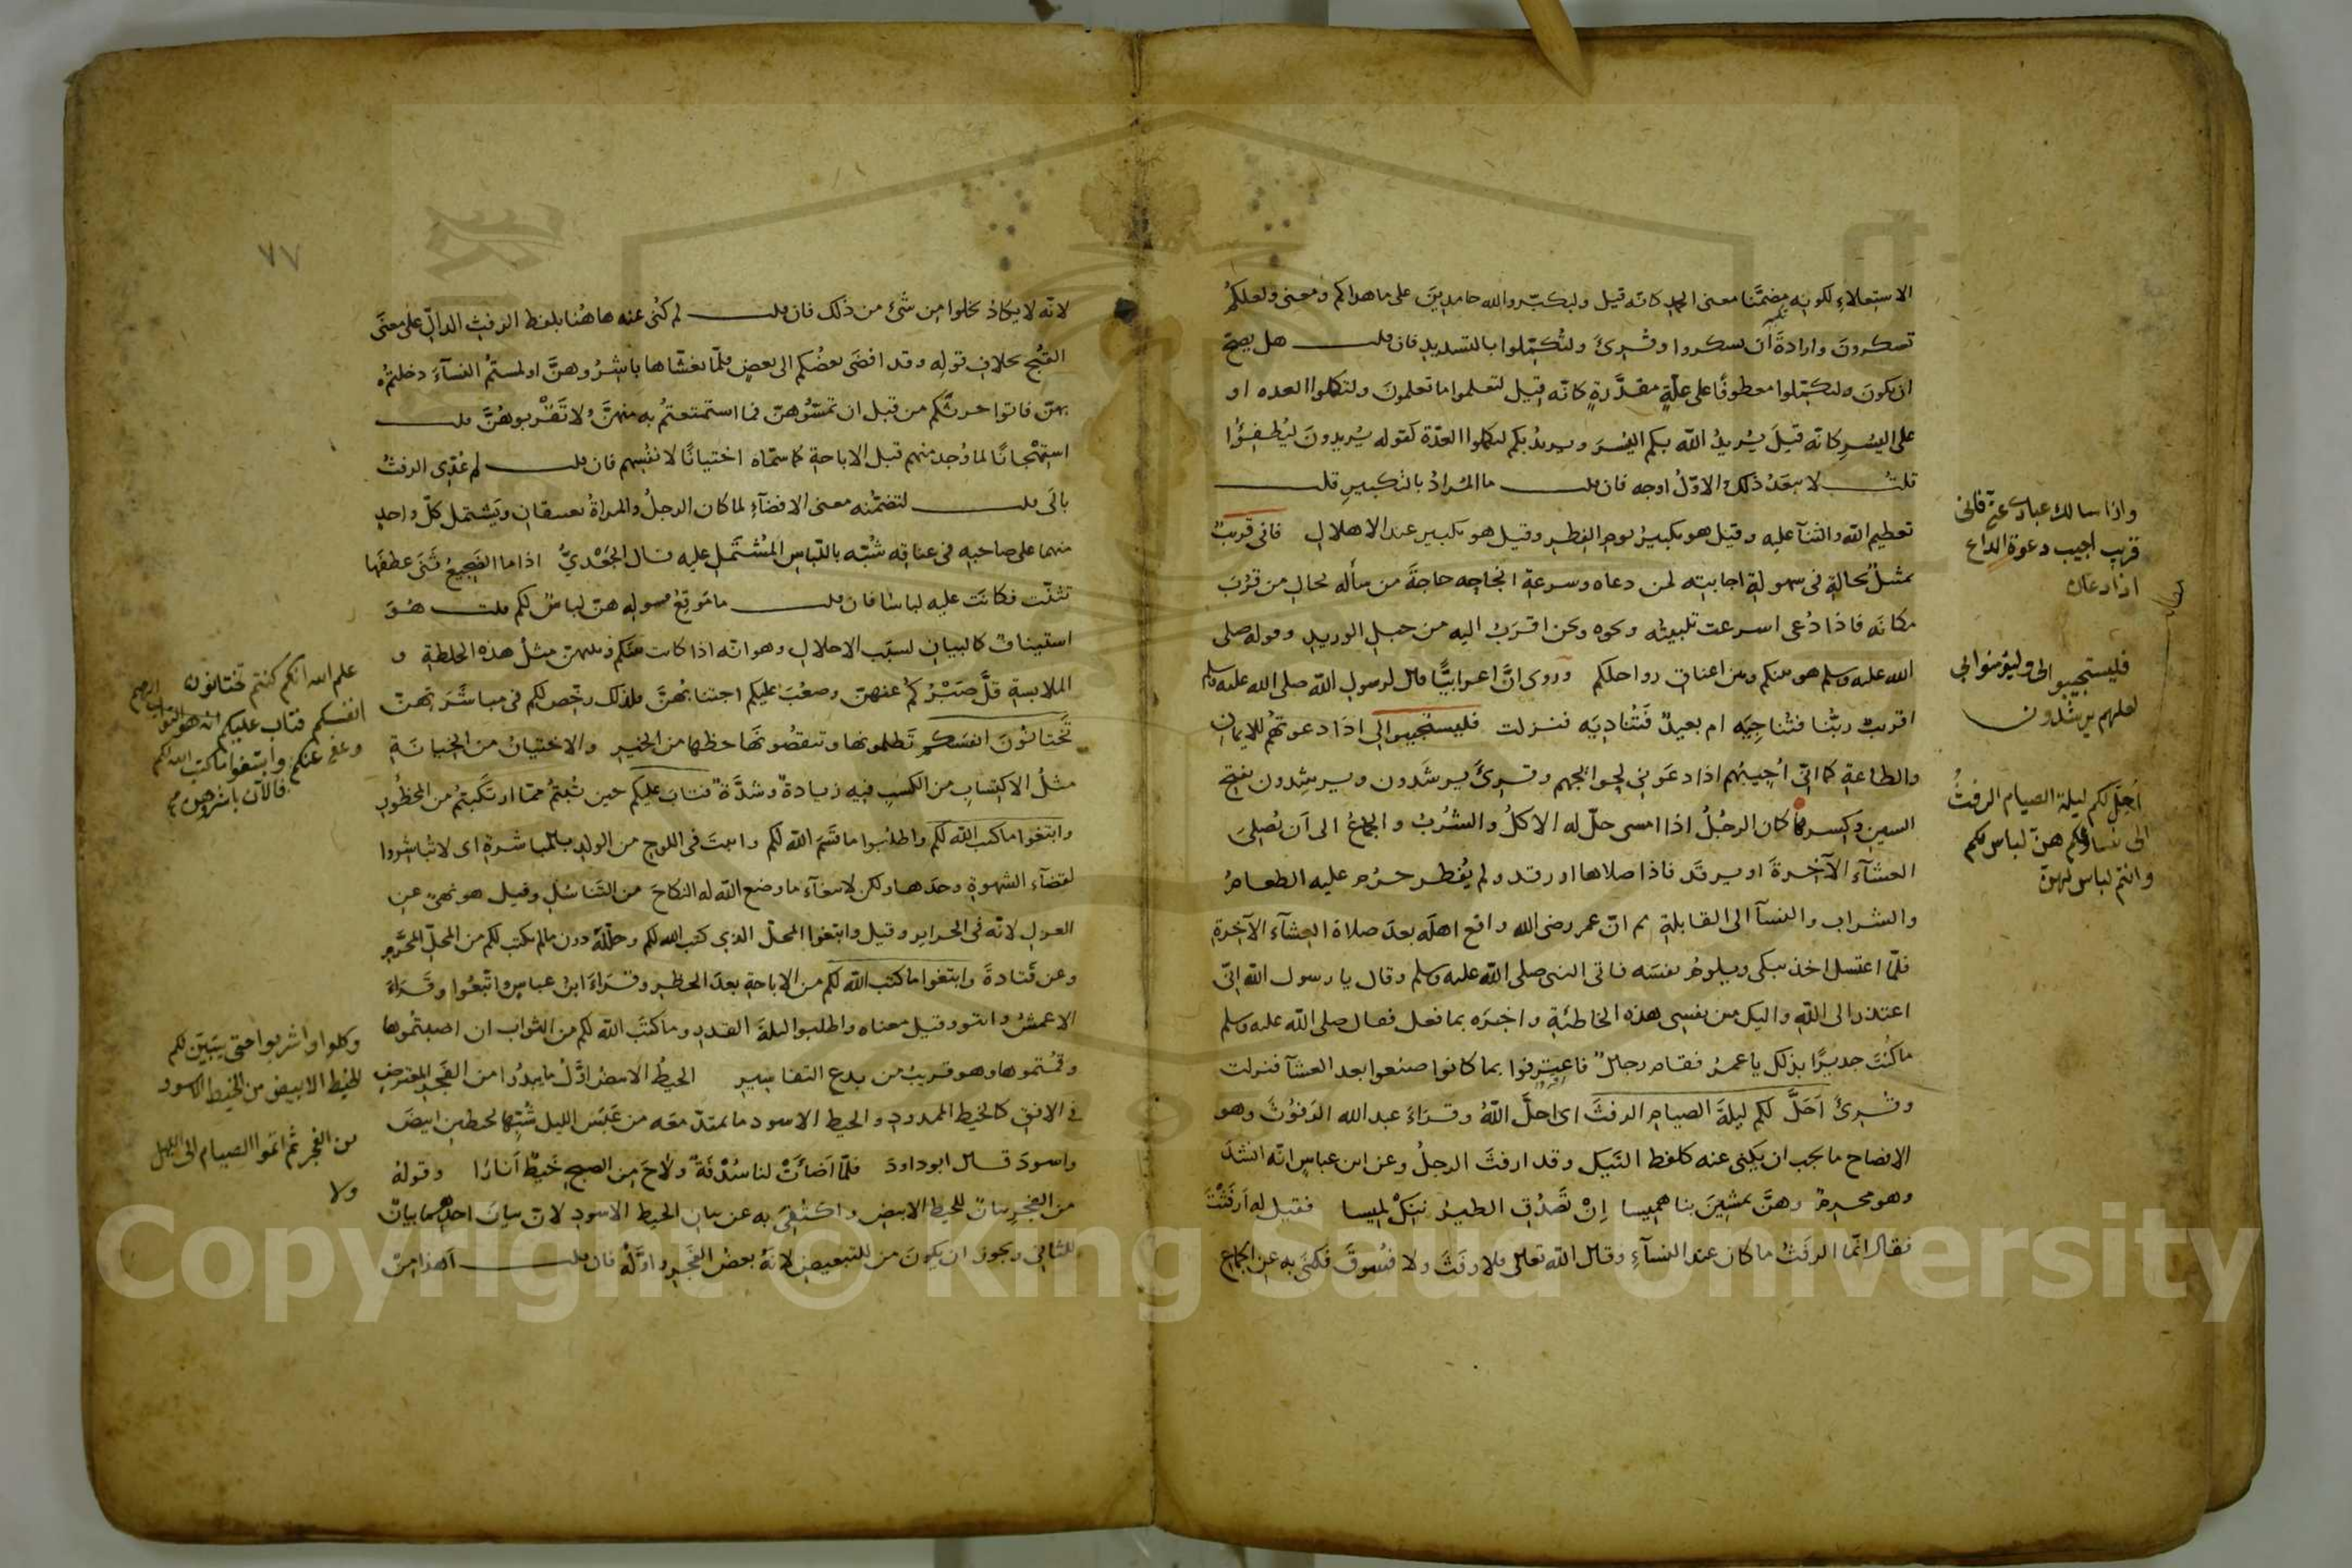 الاستعلاء لكونه مضمنا معنى الحمد كانه قيل ولتكبروا الله حامدين على ما هداكم ومعنى ولعلكم
تشكرون وارادة ان تشكروا وقرئ ولتكملوا بالتشديد فان قلت هل يصح
ان يكون ولتكملوا معطوفا على علة مقدرة كانه قيل لتعلموا ما تعلمون ولتكملوا العدة او
على اليسر كانه قيل يريد الله بكم اليسر ويريد بكم لتكملوا العدة كقوله يريدون ليطفؤا
قلت لا يبعد ذلك والاول اوجه فان قلت ما المراد بالتكبير قلت
تعظيم الله والثناء عليه وقيل هو تكبير يوم الفطر وقيل هو تكبير عند الاهلال فانى قريب
تمثيل لحاله فى سهولة اجابته لمن دعاه وسرعة انجاحه حاجة من سأله بحال من قرب
مكانه فاذا دعى اسرعت تلبيته ونحوه ونحن اقرب اليه من حبل الوريد وقوله صلى
الله عليه وسلم هو بينكم وبين اعناق رواحلكم وروى ان اعرابيا قال لرسول الله صلى الله عليه وسلم
اقريب ربنا فنناجيه ام بعيد فنناديه فنزلت فليستجيبوا لى اذا دعوتهم للايمان
والطاعة كما انى اجيبهم اذا دعونى لحوائجهم وقرئ يرشدون ويرشدون بفتح
الشين وكسرها كان الرجل اذا امسى حل له الاكل والشرب والجماع الى ان يصلى
العشآء الآخرة او يرقد فاذا صلاها او رقد ولم يفطر حرم عليه الطعام
والشراب والنسآ الى القابلة ثم ان عمر رضى الله واقع اهله بعد صلاة العشآء الآخرة
فلما اغتسل اخذ يبكى ويلوم نفسه فاتى النبى صلى الله عليه وسلم وقال يا رسول الله انى
اعتذر الى الله واليك من نفسى هذه الخاطئة واخبره بما فعل فقال صلى الله عليه وسلم
ما كنت جديرا بذلك يا عمر فقام رجال فاعترفوا بما كانوا صنعوا بعد العشآ فنزلت
وقرئ احل لكم ليلة الصيام الرفث اى احل الله وقراء عبد الله الرفوث وهو
الافصاح بما يجب ان يكنى عنه كلفظ النيك وقد ارفث الرجل وعن ابن عباس انه انشد
وهو محرم وهن يمشين بنا هميسا ان تصدق الطير ننك لميسا فقيل له ارفثت
فقال انما الرفث ما كان عند النسآء وقال الله تعالى فلا رفث ولا فسوق فكنى به عن الجماع
واذا سالك عبادى عنى فانى
قريب اجيب دعوة الداع
اذا دعان
فليستجيبوا لى وليؤمنوا بى
لعلهم يرشدون
احل لكم ليلة الصيام الرفث
الى نسائكم هن لباس لكم
وانتم لباس لهن
٧٧
لانه لا يكاد يخلوا من شئ من ذلك فان قلت لم كنى عنه هاهنا بلفظ الرفث الدال على معنى
القبح بخلاف قوله وقد افضى بعضكم الى بعض فلما تغشاها باشروهن او لمستم النسآء دخلتم
بهن فاتوا حرثكم من قبل ان تمسوهن فما استمتعتم به منهن ولا تقربوهن قلت
استهجانا لما وجد منهم قبل الاباحة كما سماه اختيانا لانفسهم فان قلت لم عدى الرفث
بالى قلت لتضمنه معنى الافضآء لما كان الرجل والمراة يعتنقان ويشتمل كل واحد
منهما على صاحبه فى عناقه شبه باللباس المشتمل عليه قال الجعدى اذا ما الضجيع ثنى عطفها
تثنت فكانت عليه لباسا فان قلت ما موقع قوله هن لباس لكم قلت هو
استيناف كالبيان لسبب الاحلال وهو انه اذا كانت بينكم وبينهن مثل هذه الخلطة و
الملابسة قل صبركم عنهن وصعب عليكم اجتنابهن فلذلك رخص لكم فى مباشرتهن
تختانون انفسكم تظلمونها وتنقصونها حظها من الخير والاختيان من الخيانة
مثل الاكتساب من الكسب فيه زيادة وشدة فتاب عليكم حين تبتم مما ارتكبتم من المحظور
وابتغوا ما كتب الله لكم واطلبوا ما قسم الله لكم واثبت فى اللوح من الولد بالمباشرة اى لا تباشروا
لقضآء الشهوة وحدها ولكن لابتغآء ما وضع الله له النكاح من التناسل وقيل هو نهى عن
العزل لانه فى الحراير وقيل وابتغوا المحل الذى كتب الله لكم وحلله دون ما لم يكتب لكم من المحل المحرم
وعن قتادة وابتغوا ما كتب الله لكم من الاباحة بعد الحظر وقراء ابن عباس واتبعوا وقراء
الاعمش واتوا وقيل معناه واطلبوا ليلة القدر وما كتب الله لكم من الثواب ان اصبتموها
وقمتموها وهو قريب من بدع التفاسير الخيط الابيض اول ما يبدو من الفجر المعترض
فى الافق كالخيط الممدود والخيط الاسود ما يمتد معه من غبش الليل شبها بخيطين ابيض
واسود قال ابو داود فلما اضأت لنا سدفة ولاح من الصبح خيط انارا وقوله
من الفجر بيان للخيط الابيض واكتفى به عن بيان الخيط الاسود لان بيان احدهما بيان
للثانى ويجوز ان يكون من للتبعيض لانه بعض الفجر واوله فان قلت اهذا من
علم الله انكم كنتم تختانون
انفسكم فتاب عليكم انه هو التواب الرحيم
وعفى عنكم وابتغوا ما كتب الله لكم
فالآن باشروهن
وكلوا واشربوا حتى يتبين لكم
الخيط الابيض من الخيط الاسود
من الفجر ثم اتموا الصيام الى الليل
ولا
Copyright © King Saud University